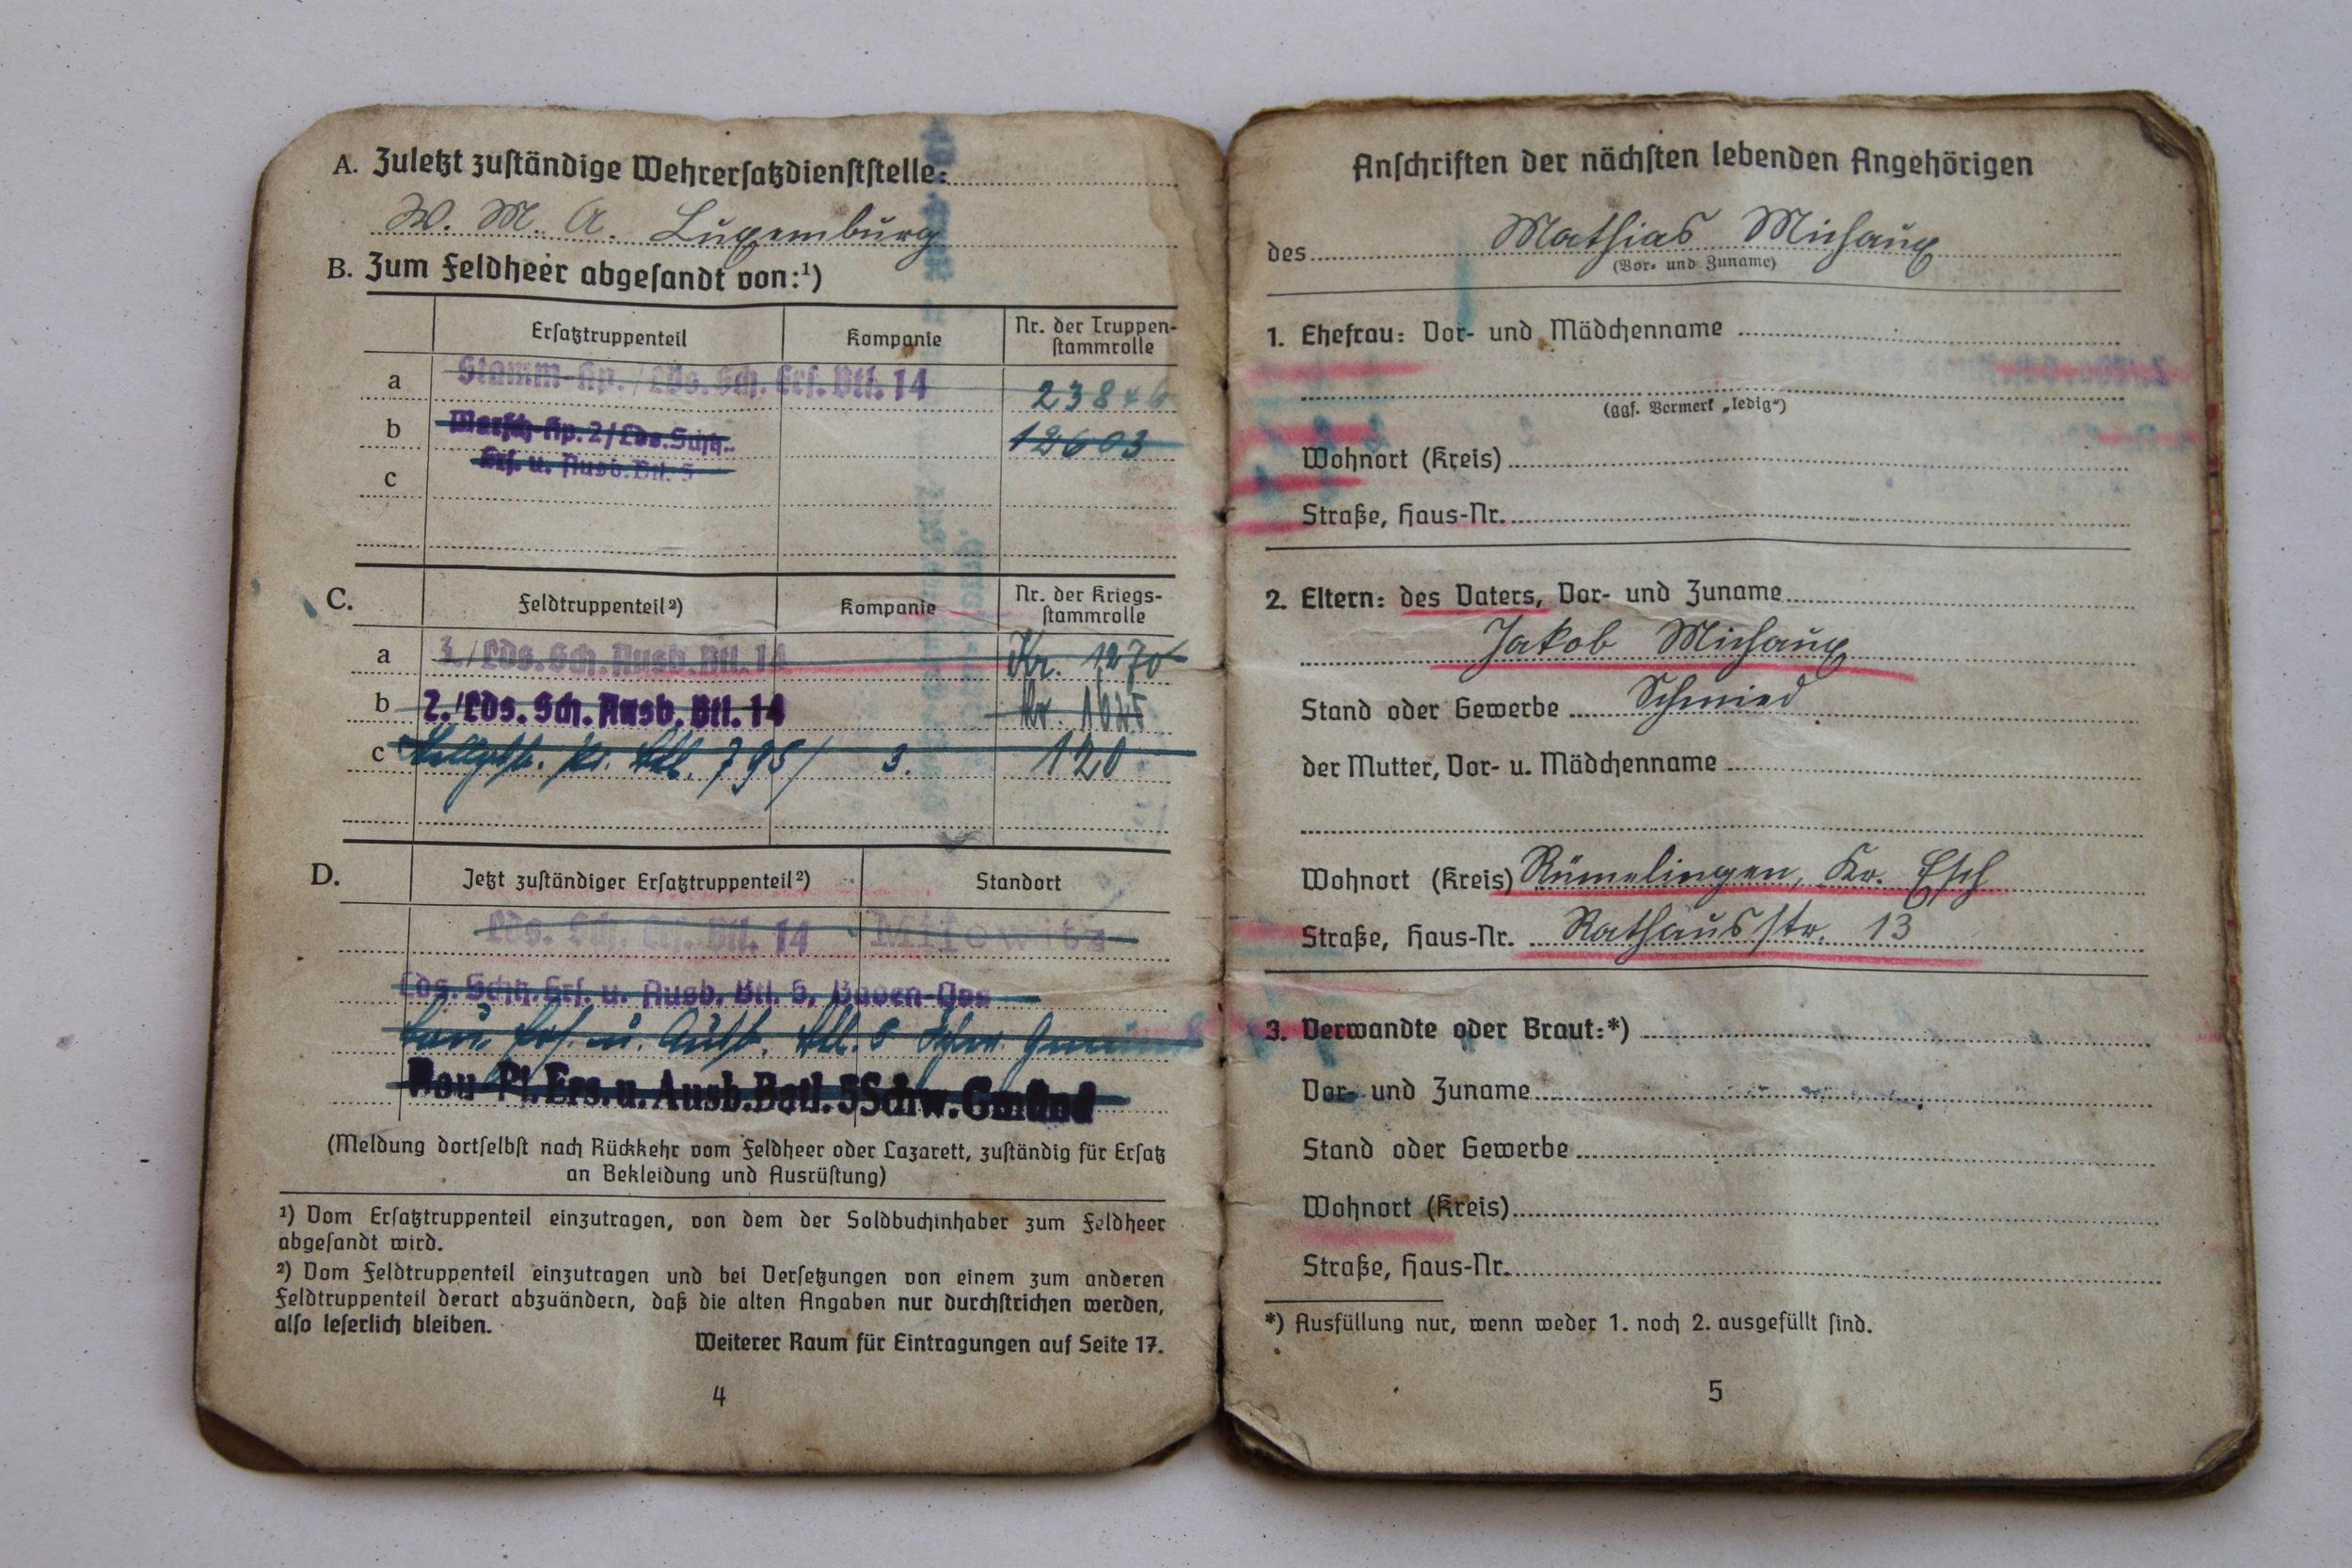 A. Zuletzt zuständige Wehrersatzdienststelle:
W. M. A. Luxemburg
B. Zum Feldheer abgesandt von:¹)
Ersatztruppenteil Kompanie Nr. der Truppen-
stammrolle
a Stamm-Kp./Lds. Sch. Ers. Btl. 14 23846
b Marsch-Kp. 2/Lds. Schtz.- 12603
Ers. u. Ausb. Btl. 5
c
C. Feldtruppenteil²) Kompanie Nr. der Kriegs-
stammrolle
a 3./Lds. Sch. Ausb. Btl. 14 Kr. 1270
b 2./Lds. Sch. Ausb. Btl. 14 Kr.
c 795/ 3. 120
D. Jetzt zuständiger Ersatztruppenteil²) Standort
Lds. Sch. Ers. Btl. 14 Milowitz
Lds. Schtz. Ers. u. Ausb. Btl. 5, Baden-Oos
Bau. Ers. u. Ausb. Btl. 5 Schw. Gmünd
Bau Pi. Ers. u. Ausb. Batl. 5 Schw. Gmünd
(Meldung dortselbst nach Rückkehr vom Feldheer oder Lazarett, zuständig für Ersatz
an Bekleidung und Ausrüstung)
¹) Vom Ersatztruppenteil einzutragen, von dem der Soldbuchinhaber zum Feldheer
abgesandt wird.
²) Vom Feldtruppenteil einzutragen und bei Versetzungen von einem zum anderen
Feldtruppenteil derart abzuändern, daß die alten Angaben nur durchstrichen werden,
also leserlich bleiben.
Weiterer Raum für Eintragungen auf Seite 17.
4
Anschriften der nächsten lebenden Angehörigen
des Mathias Michaux
(Vor- und Zuname)
1. Ehefrau: Vor- und Mädchenname
(ggf. Vermerk „ledig“)
Wohnort (Kreis)
Straße, Haus-Nr.
2. Eltern: des Vaters, Vor- und Zuname
Jakob Michaux
Stand oder Gewerbe Schmied
der Mutter, Vor- u. Mädchenname
Wohnort (Kreis) Rümelingen, Kr. Esch
Straße, Haus-Nr. Rathausstr. 13
3. Verwandte oder Braut:*)
Vor- und Zuname
Stand oder Gewerbe
Wohnort (Kreis)
Straße, Haus-Nr.
*) Ausfüllung nur, wenn weder 1. noch 2. ausgefüllt sind.
5